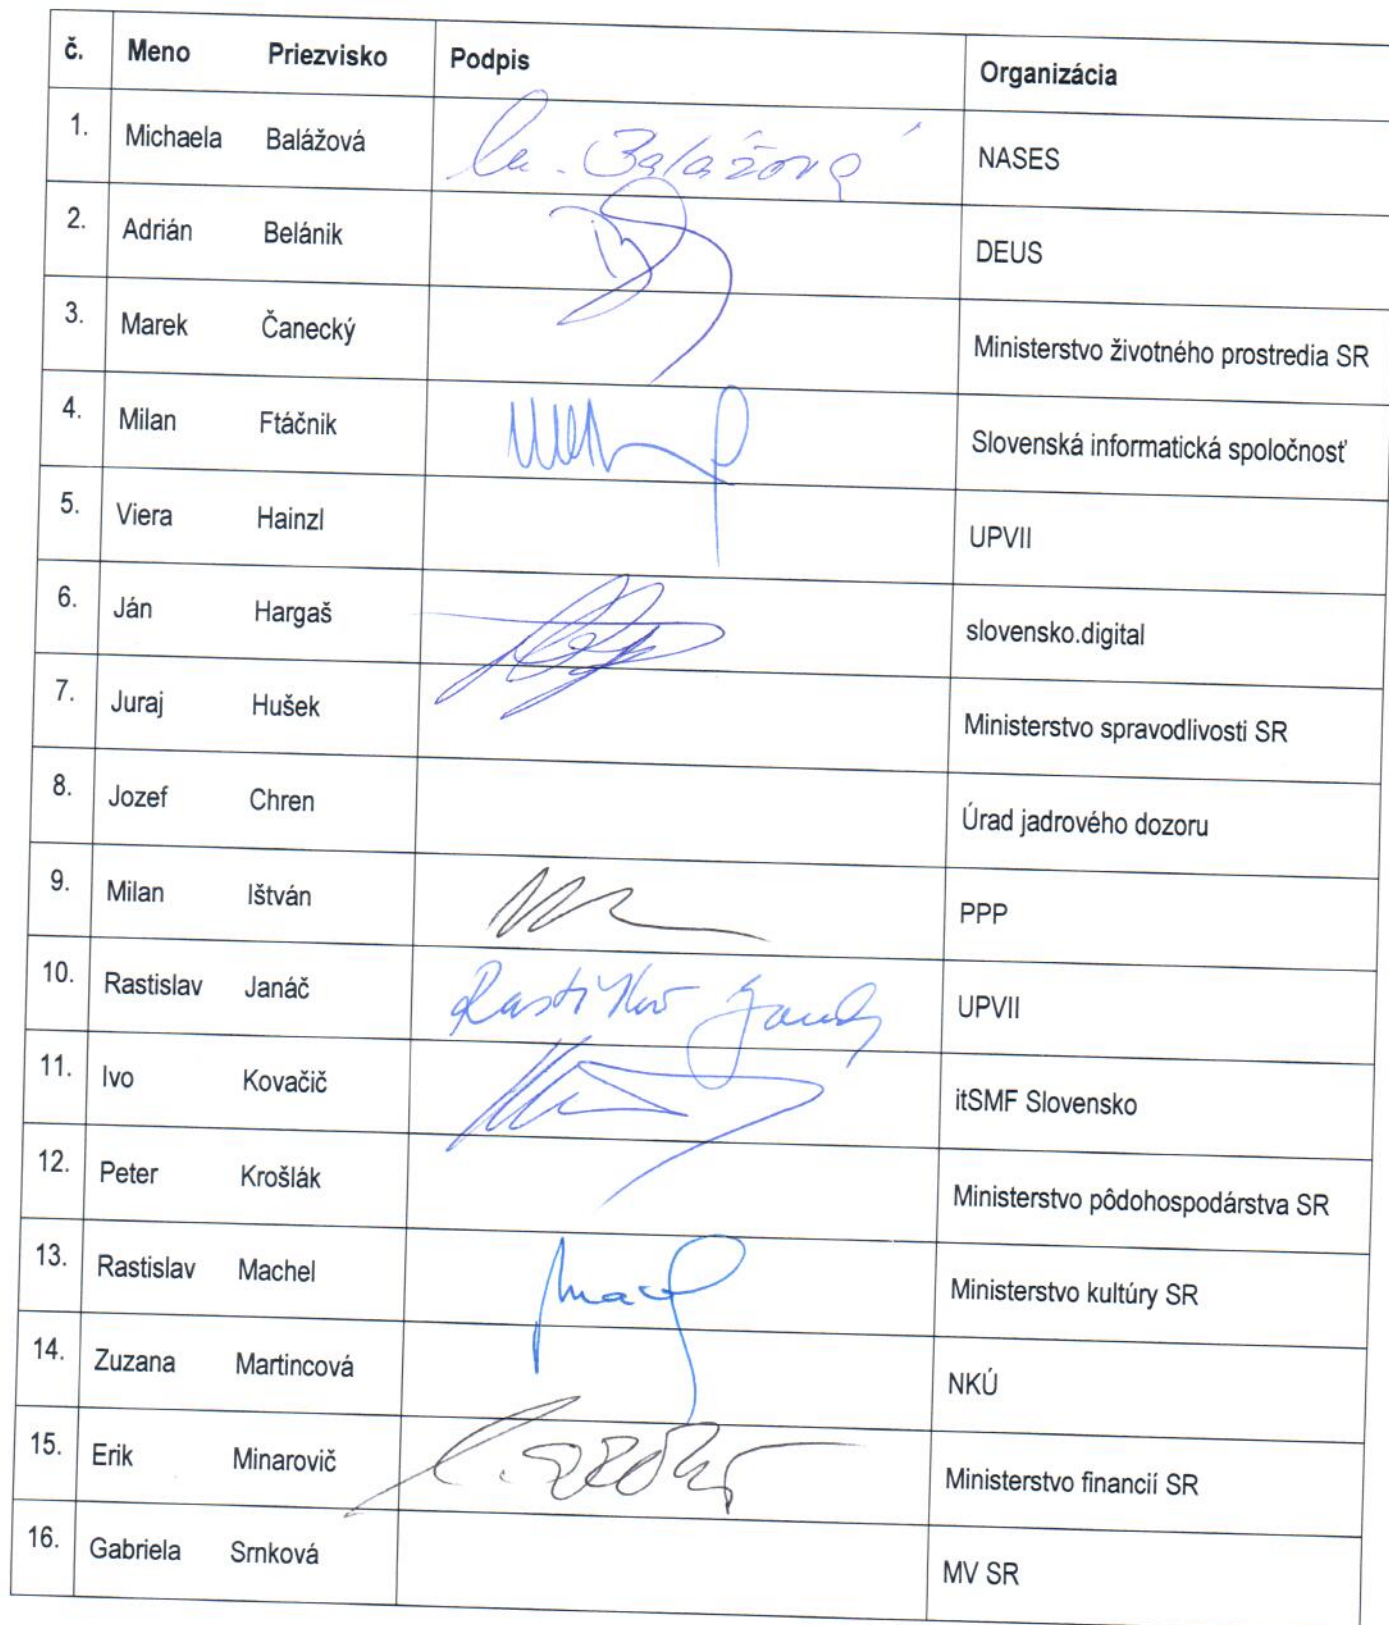 č. Meno Priezvisko Podpis Organizácia
1. Michaela Balážová M. Balážová NASES
2. Adrián Belánik DEUS
3. Marek Čanecký Ministerstvo životného prostredia SR
4. Milan Ftáčnik Slovenská informatická spoločnosť
5. Viera Hainzl UPVII
6. Ján Hargaš slovensko.digital
7. Juraj Hušek Ministerstvo spravodlivosti SR
8. Jozef Chren Úrad jadrového dozoru
9. Milan Ištván PPP
10. Rastislav Janáč UPVII
11. Ivo Kovačič itSMF Slovensko
12. Peter Krošlák Ministerstvo pôdohospodárstva SR
13. Rastislav Machel Ministerstvo kultúry SR
14. Zuzana Martincová NKÚ
15. Erik Minarovič Ministerstvo financií SR
16. Gabriela Srnková MV SR